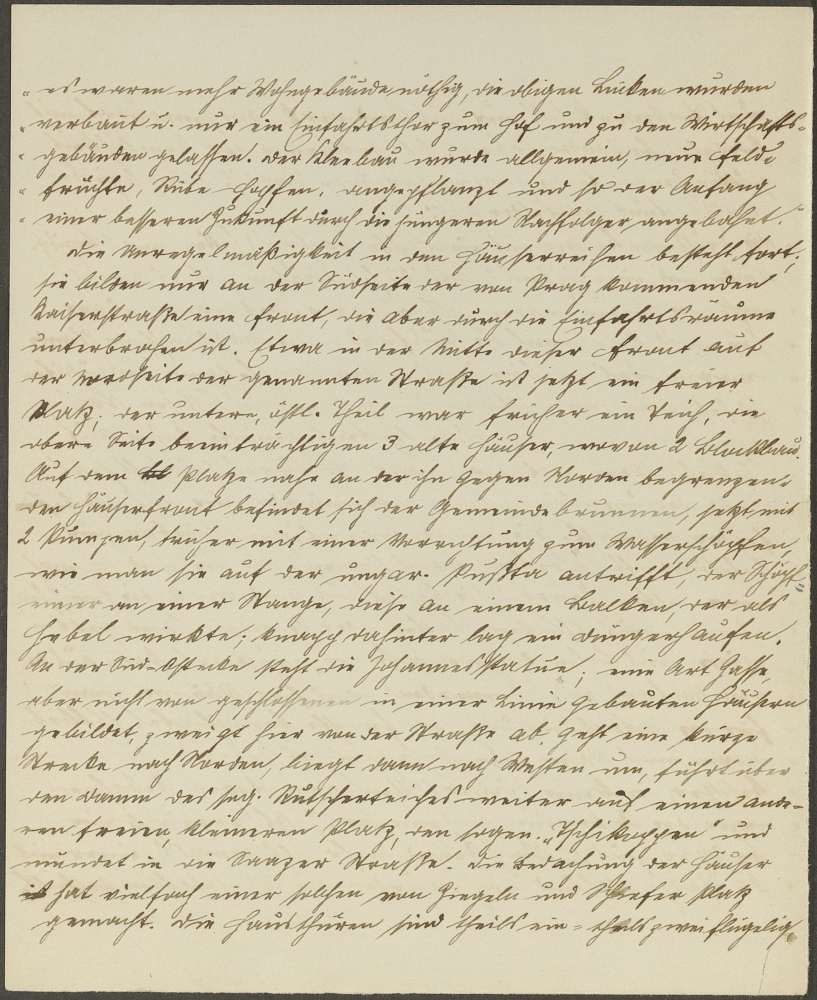 „ es waren mehr Wohngebäude nöthig, die obigen Lücken wurden
„ verbaut u. nur ein Einfahrtsthor zum Hof und zu den Wirtschafts-
„ gebäuden gelassen. Der Kleebau wurde allgemein, neue Feld-
„ früchte, Rübe Hopfen, angepflanzt und so der Anfang
„ einer besseren Zukunft durch die jüngeren Nachfolger angebahnt.“
Die Unregelmäßigkeit in den Häuserreihen besteht fort;
sie bilden nur an der Südseite der von Prag kommenden
Kaiserstraße eine Front, die aber durch die Einfahrtsräume
unterbrochen ist. Etwa in der Mitte dieser Front auf
der Nordseite der genannten Straße ist jetzt ein freier
Platz; der untere, östl. Theil war früher ein Teich, die
obere Seite beeinträchtigen 3 alte Häuser, wovon 2 Blockbau.
Auf dem Platze nahe an der ihn gegen Norden begrenzen-
den Häuserfront befindet sich der Gemeindebrunnen, jetzt mit
2 Pumpen, früher mit einer Vorrichtung zum Wasserschöpfen,
wie man sie auf der ungar. Pußta antrifft, der Schöpf-
eimer an einer Stange, diese an einem Balken, der als
Hebel wirkte; knapp dahinter lag ein Düngerhaufen.
An der Süd-Ostecke steht die Johannesstatue; eine Art Gasse,
aber nicht von geschlossenen in einer Linie gebauten Häusern
gebildet, zweigt hier von der Straße ab, geht eine kurze
Strecke nach Norden, biegt dann nach Westen um, führt über
den Damm des sog. Rutscherteiches weiter auf einen ande-
ren freien, kleineren Platz, den sogen. „Tschikuppen“ und
mündet in die Saazer Straße. Die Bedachung der Häuser
hat vielfach einer solchen von Ziegeln und Schiefer Platz
gemacht. Die Hausthüren sind theils ein- theils zweiflügelig,